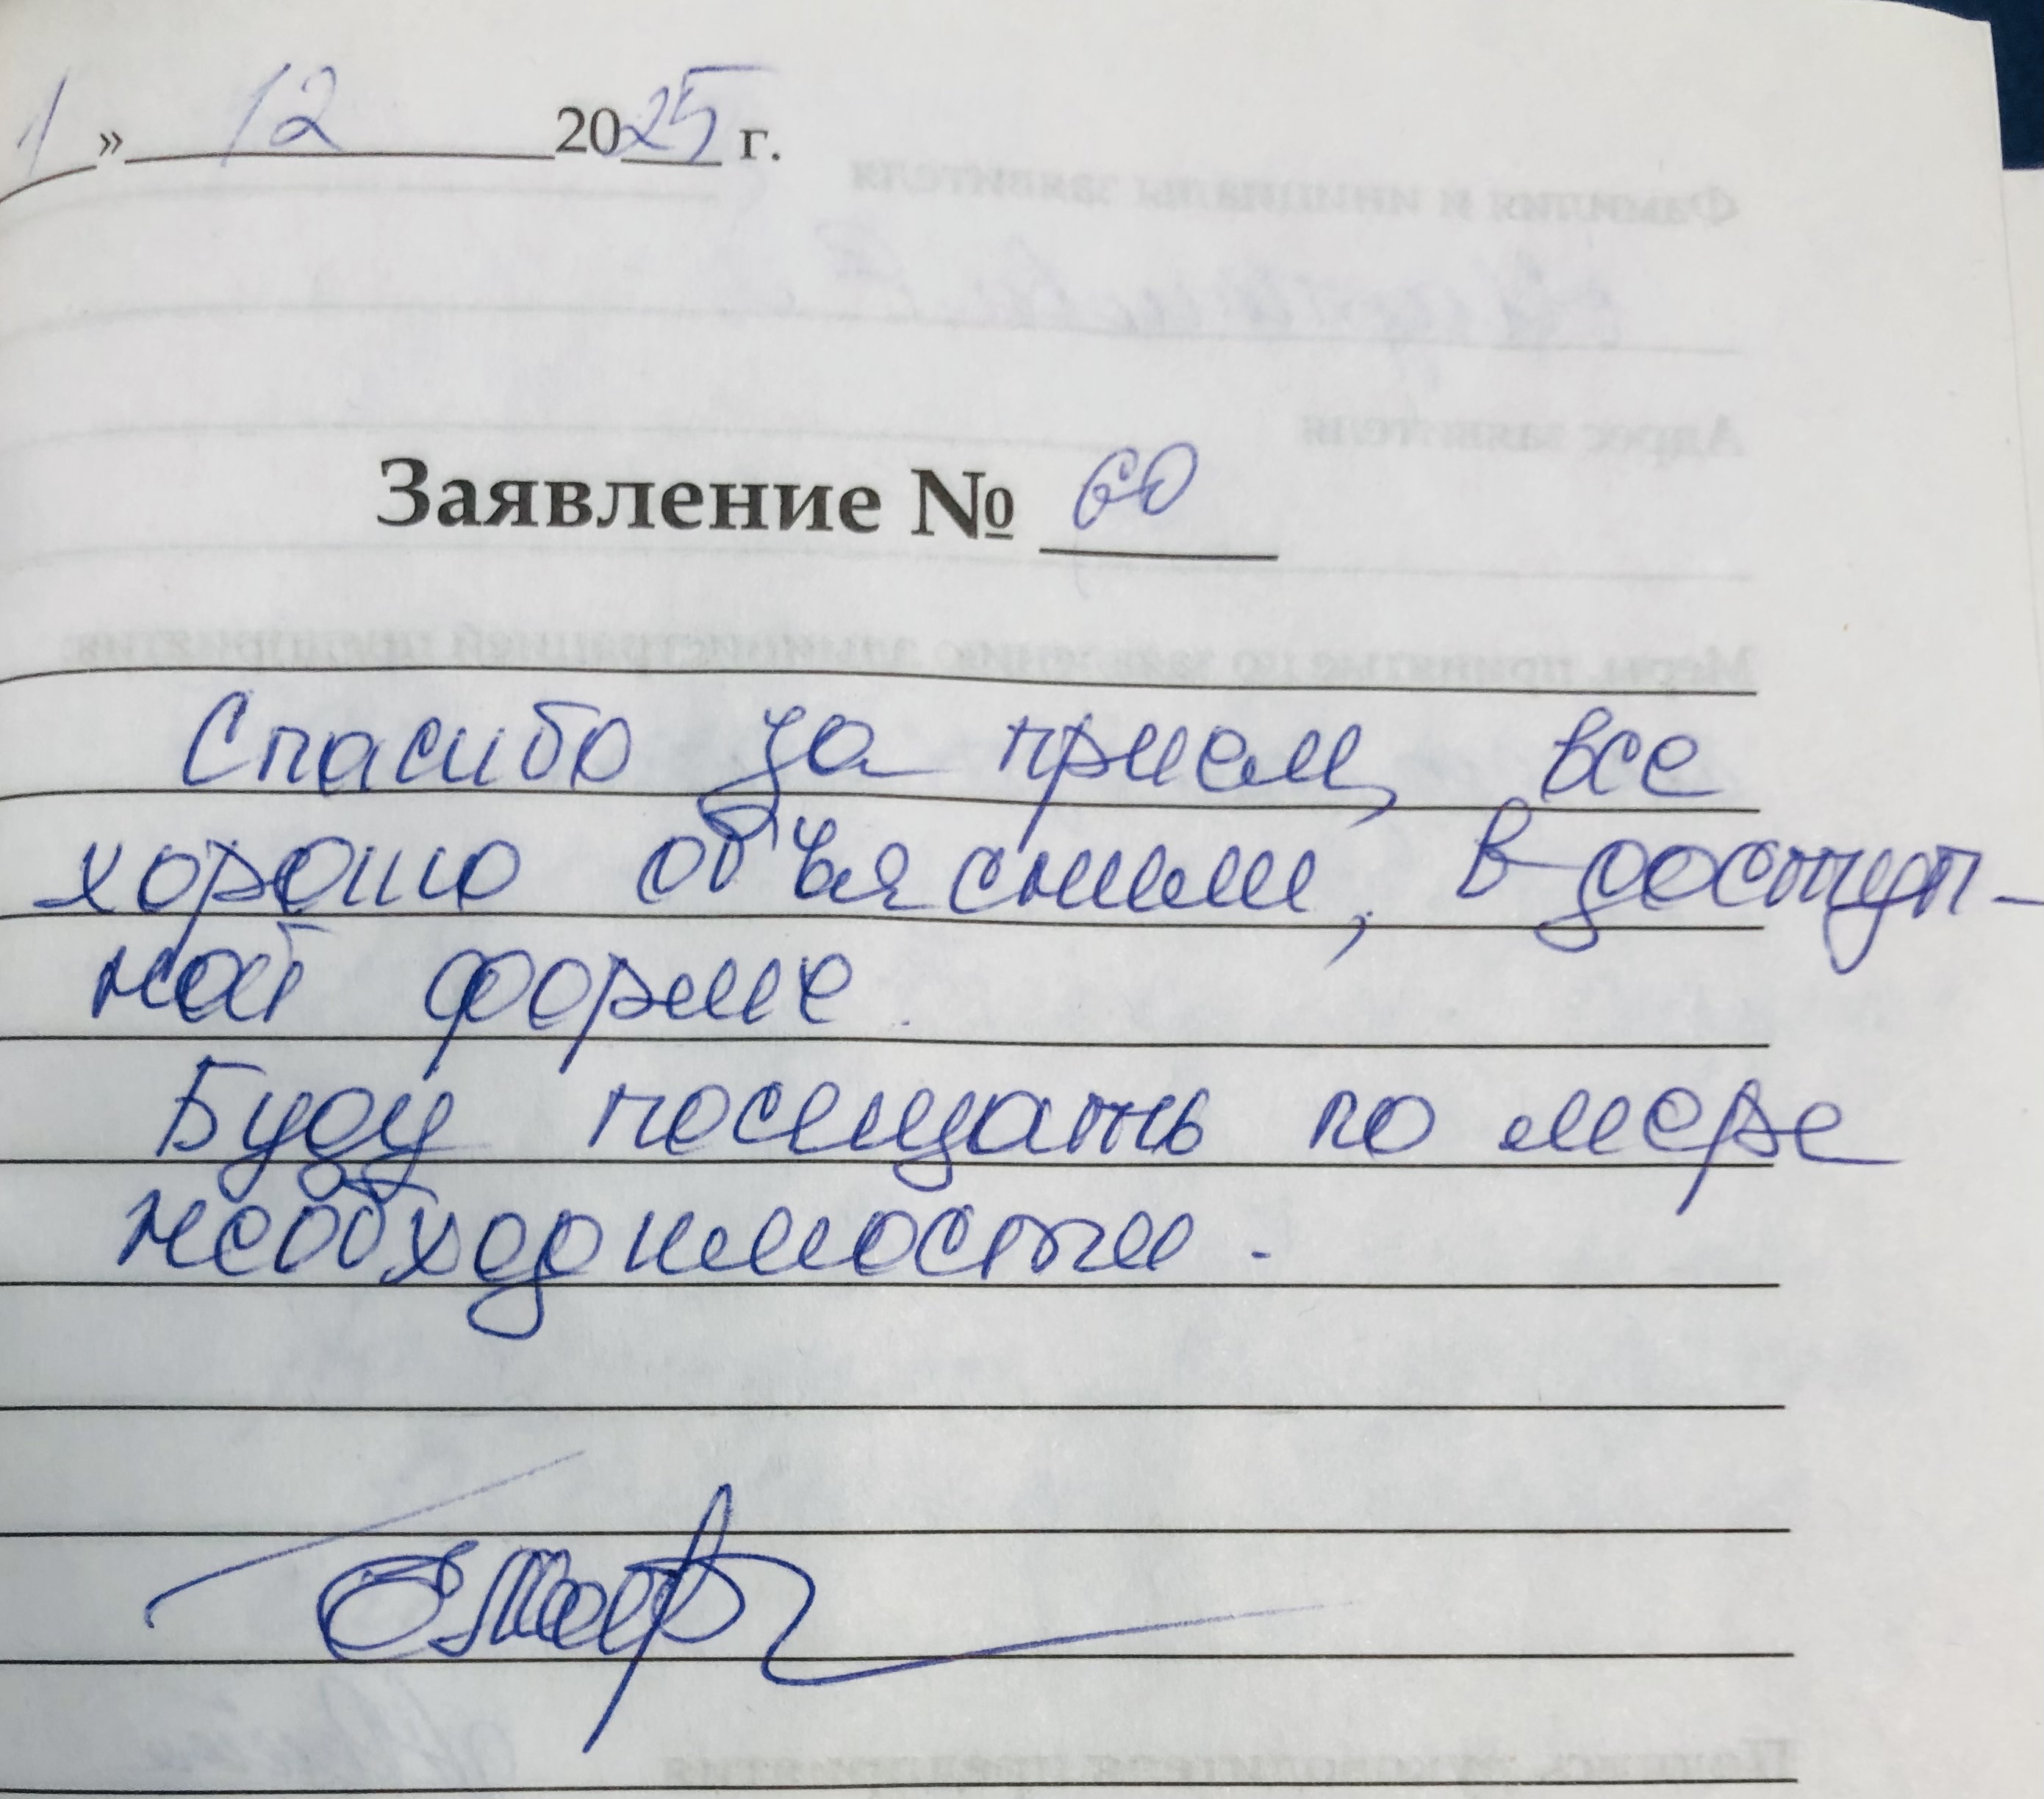 1 » 12 2025 г.
Заявление № 60
Спасибо за прием, все
хорошо объяснили, в доступ-
ной форме.
Буду посещать по мере
необходимости.